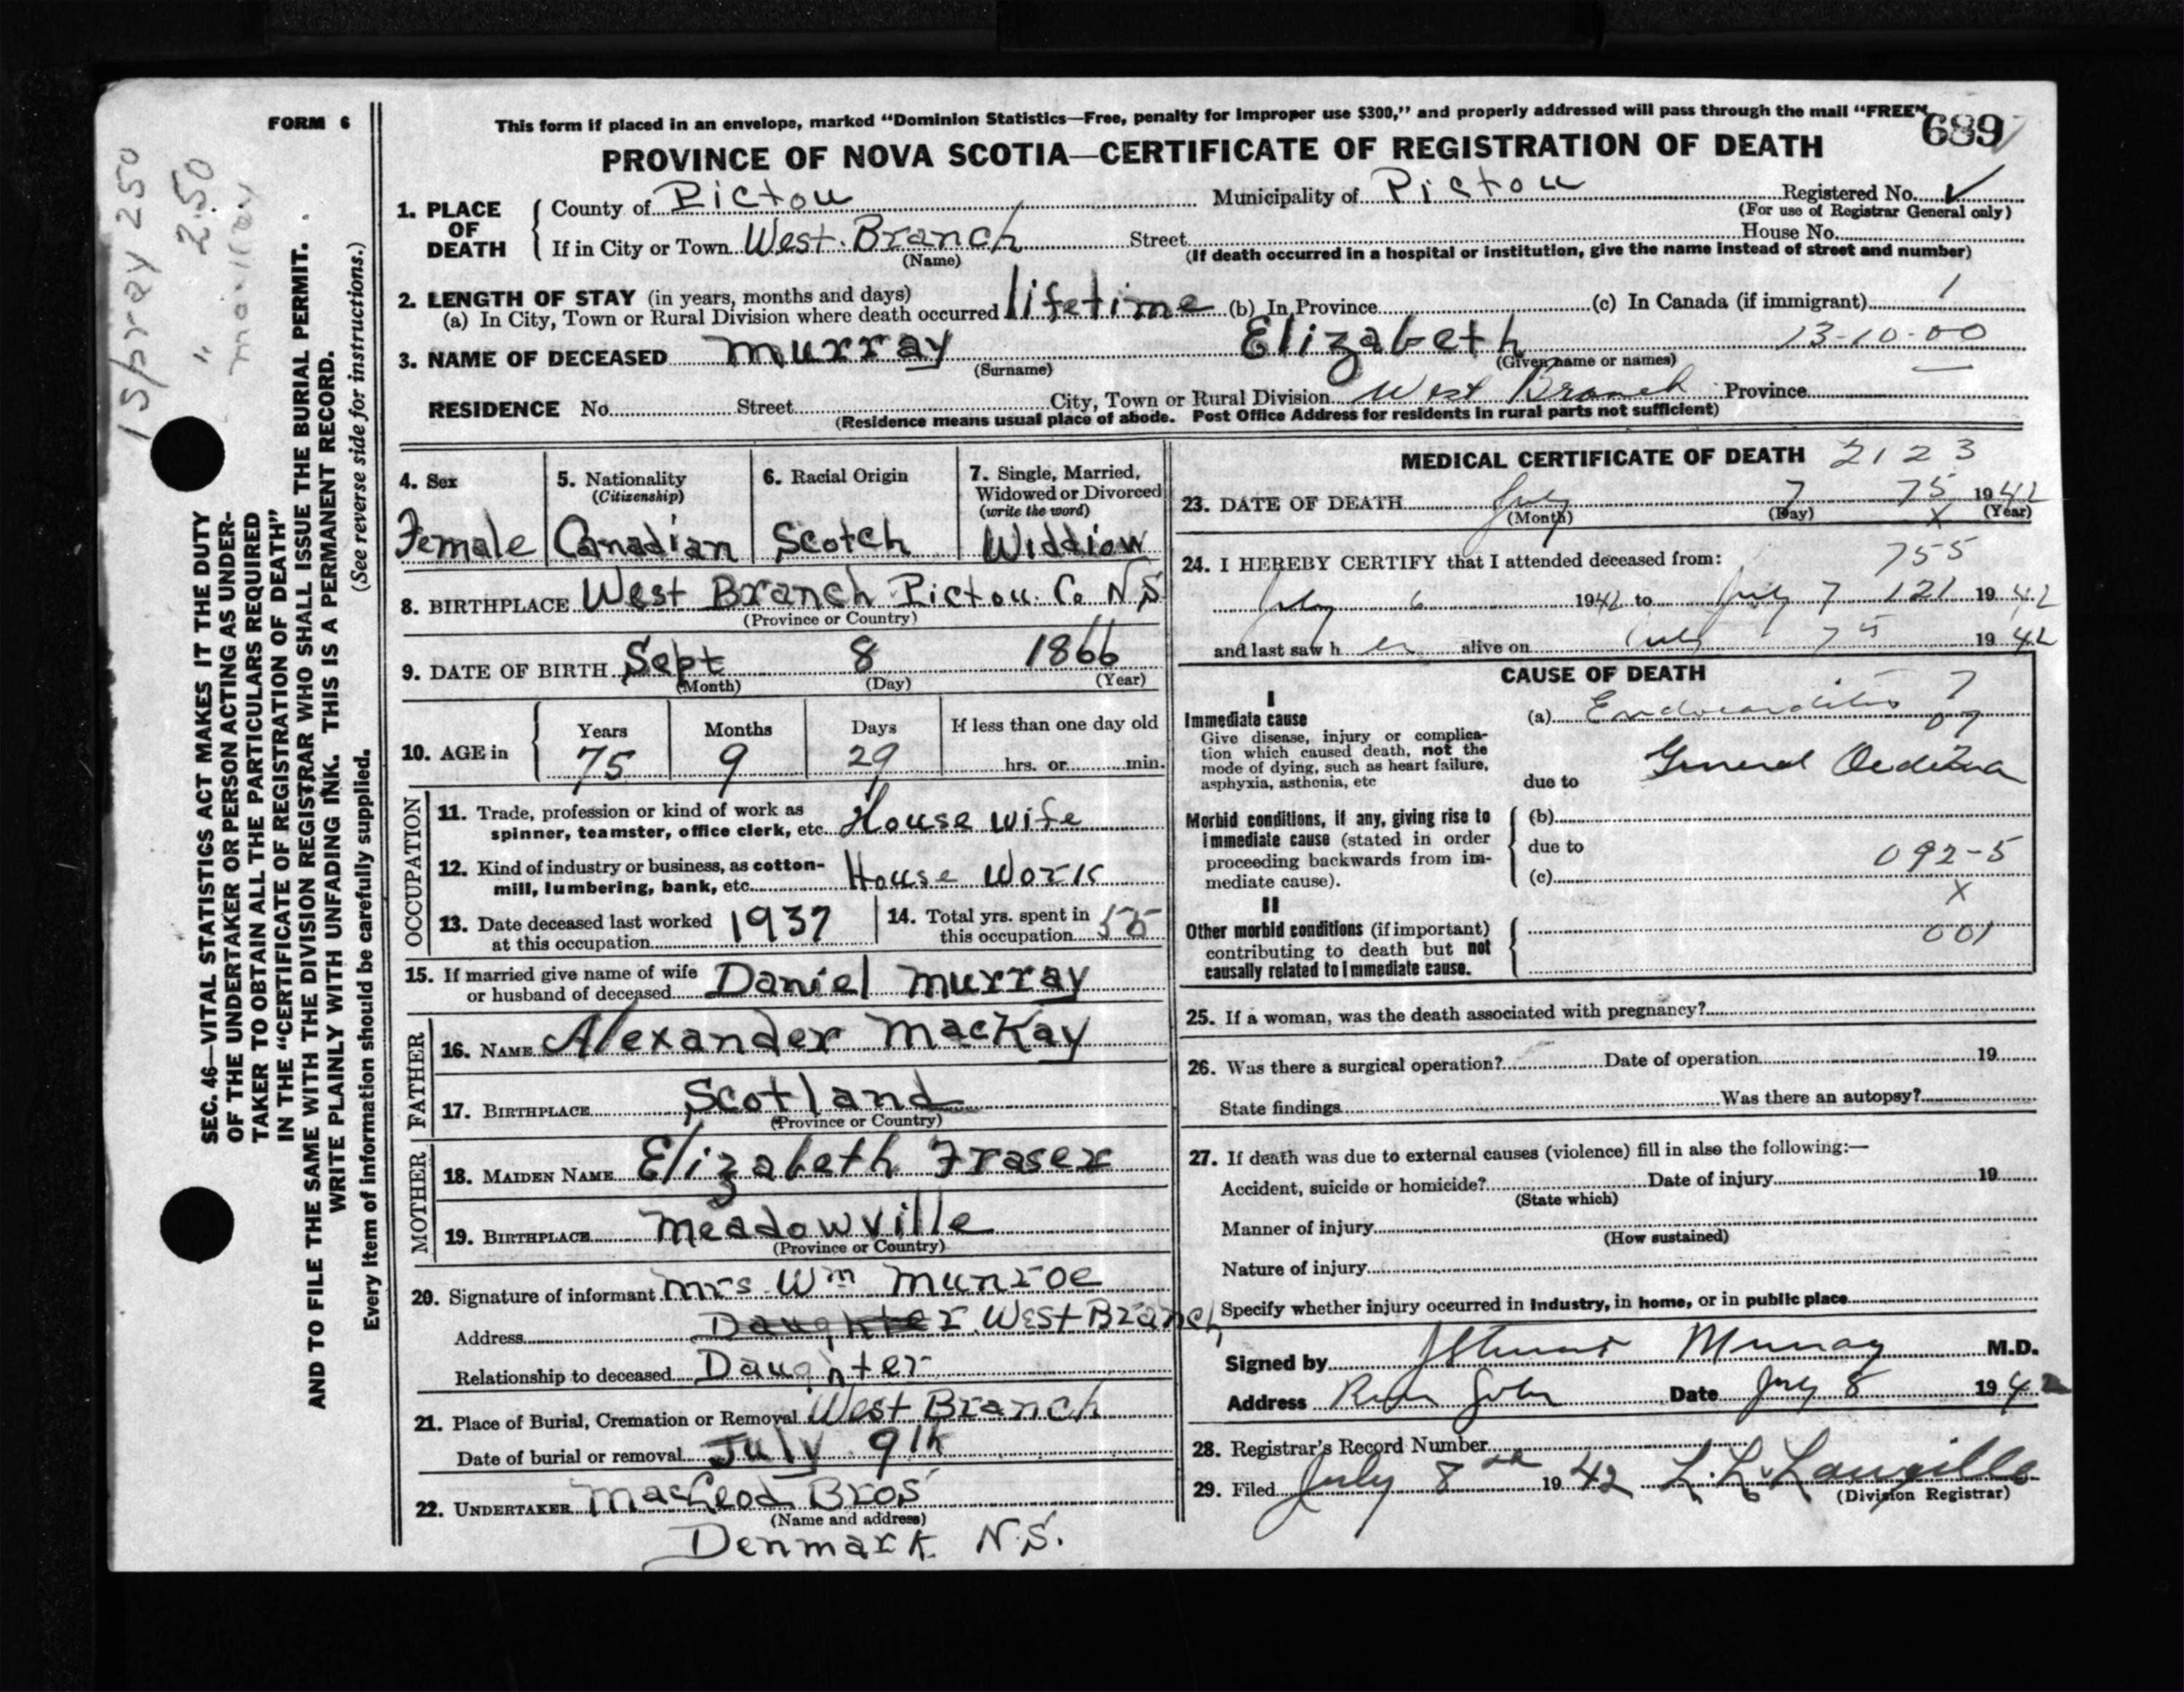 FORM 6
This form if placed in an envelope, marked "Dominion Statistics—Free, penalty for improper use $300," and properly addressed will pass through the mail "FREE".
689
PROVINCE OF NOVA SCOTIA—CERTIFICATE OF REGISTRATION OF DEATH
1. PLACE OF DEATH
County of Pictou Municipality of Pictou Registered No. ✓
(For use of Registrar General only)
If in City or Town West Branch Street House No.
(Name) (If death occurred in a hospital or institution, give the name instead of street and number)
2. LENGTH OF STAY (in years, months and days)
(a) In City, Town or Rural Division where death occurred lifetime (b) In Province (c) In Canada (if immigrant) 1
3. NAME OF DECEASED Murray Elizabeth 13-10-00
(Surname) (Given name or names)
RESIDENCE No. Street City, Town or Rural Division West Branch Province
(Residence means usual place of abode. Post Office Address for residents in rural parts not sufficient)
4. Sex
Female
5. Nationality
(Citizenship)
Canadian
6. Racial Origin
Scotch
7. Single, Married, Widowed or Divorced
(write the word)
Widdiow
8. BIRTHPLACE West Branch Pictou Co N.S
(Province or Country)
9. DATE OF BIRTH Sept 8 1866
(Month) (Day) (Year)
10. AGE in
Years Months Days If less than one day old
75 9 29 hrs. or min.
OCCUPATION
11. Trade, profession or kind of work as
spinner, teamster, office clerk, etc. House wife
12. Kind of industry or business, as cotton-
mill, lumbering, bank, etc. House Work
13. Date deceased last worked
at this occupation 1937
14. Total yrs. spent in
this occupation 55
15. If married give name of wife
or husband of deceased Daniel Murray
FATHER
16. NAME Alexander MacKay
17. BIRTHPLACE Scotland
(Province or Country)
MOTHER
18. MAIDEN NAME Elizabeth Fraser
19. BIRTHPLACE Meadowville
(Province or Country)
20. Signature of informant Mrs Wm Munroe
Address Daughter West Branch
Relationship to deceased Daughter
21. Place of Burial, Cremation or Removal West Branch
Date of burial or removal July 9th
22. UNDERTAKER MacLeod Bros
(Name and address)
Denmark N.S.
MEDICAL CERTIFICATE OF DEATH 2123
23. DATE OF DEATH July 7 75 1942
(Month) (Day) X (Year)
24. I HEREBY CERTIFY that I attended deceased from: 755
July 6 1942 to July 7 121 1942
and last saw h er alive on July 7 1942
CAUSE OF DEATH
I
Immediate cause
Give disease, injury or complica-
tion which caused death, not the
mode of dying, such as heart failure,
asphyxia, asthenia, etc
(a) Endocarditis 7
07
due to General Oedema
Morbid conditions, if any, giving rise to
immediate cause (stated in order
proceeding backwards from im-
mediate cause).
(b)
due to
092-5
(c)
X
II
Other morbid conditions (if important)
contributing to death but not
causally related to immediate cause.
001
25. If a woman, was the death associated with pregnancy?
26. Was there a surgical operation? Date of operation 19
State findings Was there an autopsy?
27. If death was due to external causes (violence) fill in also the following:—
Accident, suicide or homicide? Date of injury 19
(State which)
Manner of injury
(How sustained)
Nature of injury
Specify whether injury occurred in industry, in home, or in public place
Signed by Murray M.D.
Address River John Date July 8 1942
28. Registrar's Record Number
29. Filed July 8 1942 L. L. Langille
(Division Registrar)
SEC. 46—VITAL STATISTICS ACT MAKES IT THE DUTY
OF THE UNDERTAKER OR PERSON ACTING AS UNDER-
TAKER TO OBTAIN ALL THE PARTICULARS REQUIRED
IN THE "CERTIFICATE OF REGISTRATION OF DEATH"
AND TO FILE THE SAME WITH THE DIVISION REGISTRAR WHO SHALL ISSUE THE BURIAL PERMIT.
WRITE PLAINLY WITH UNFADING INK. THIS IS A PERMANENT RECORD.
Every item of information should be carefully supplied. (See reverse side for instructions.)
250
" 2.50